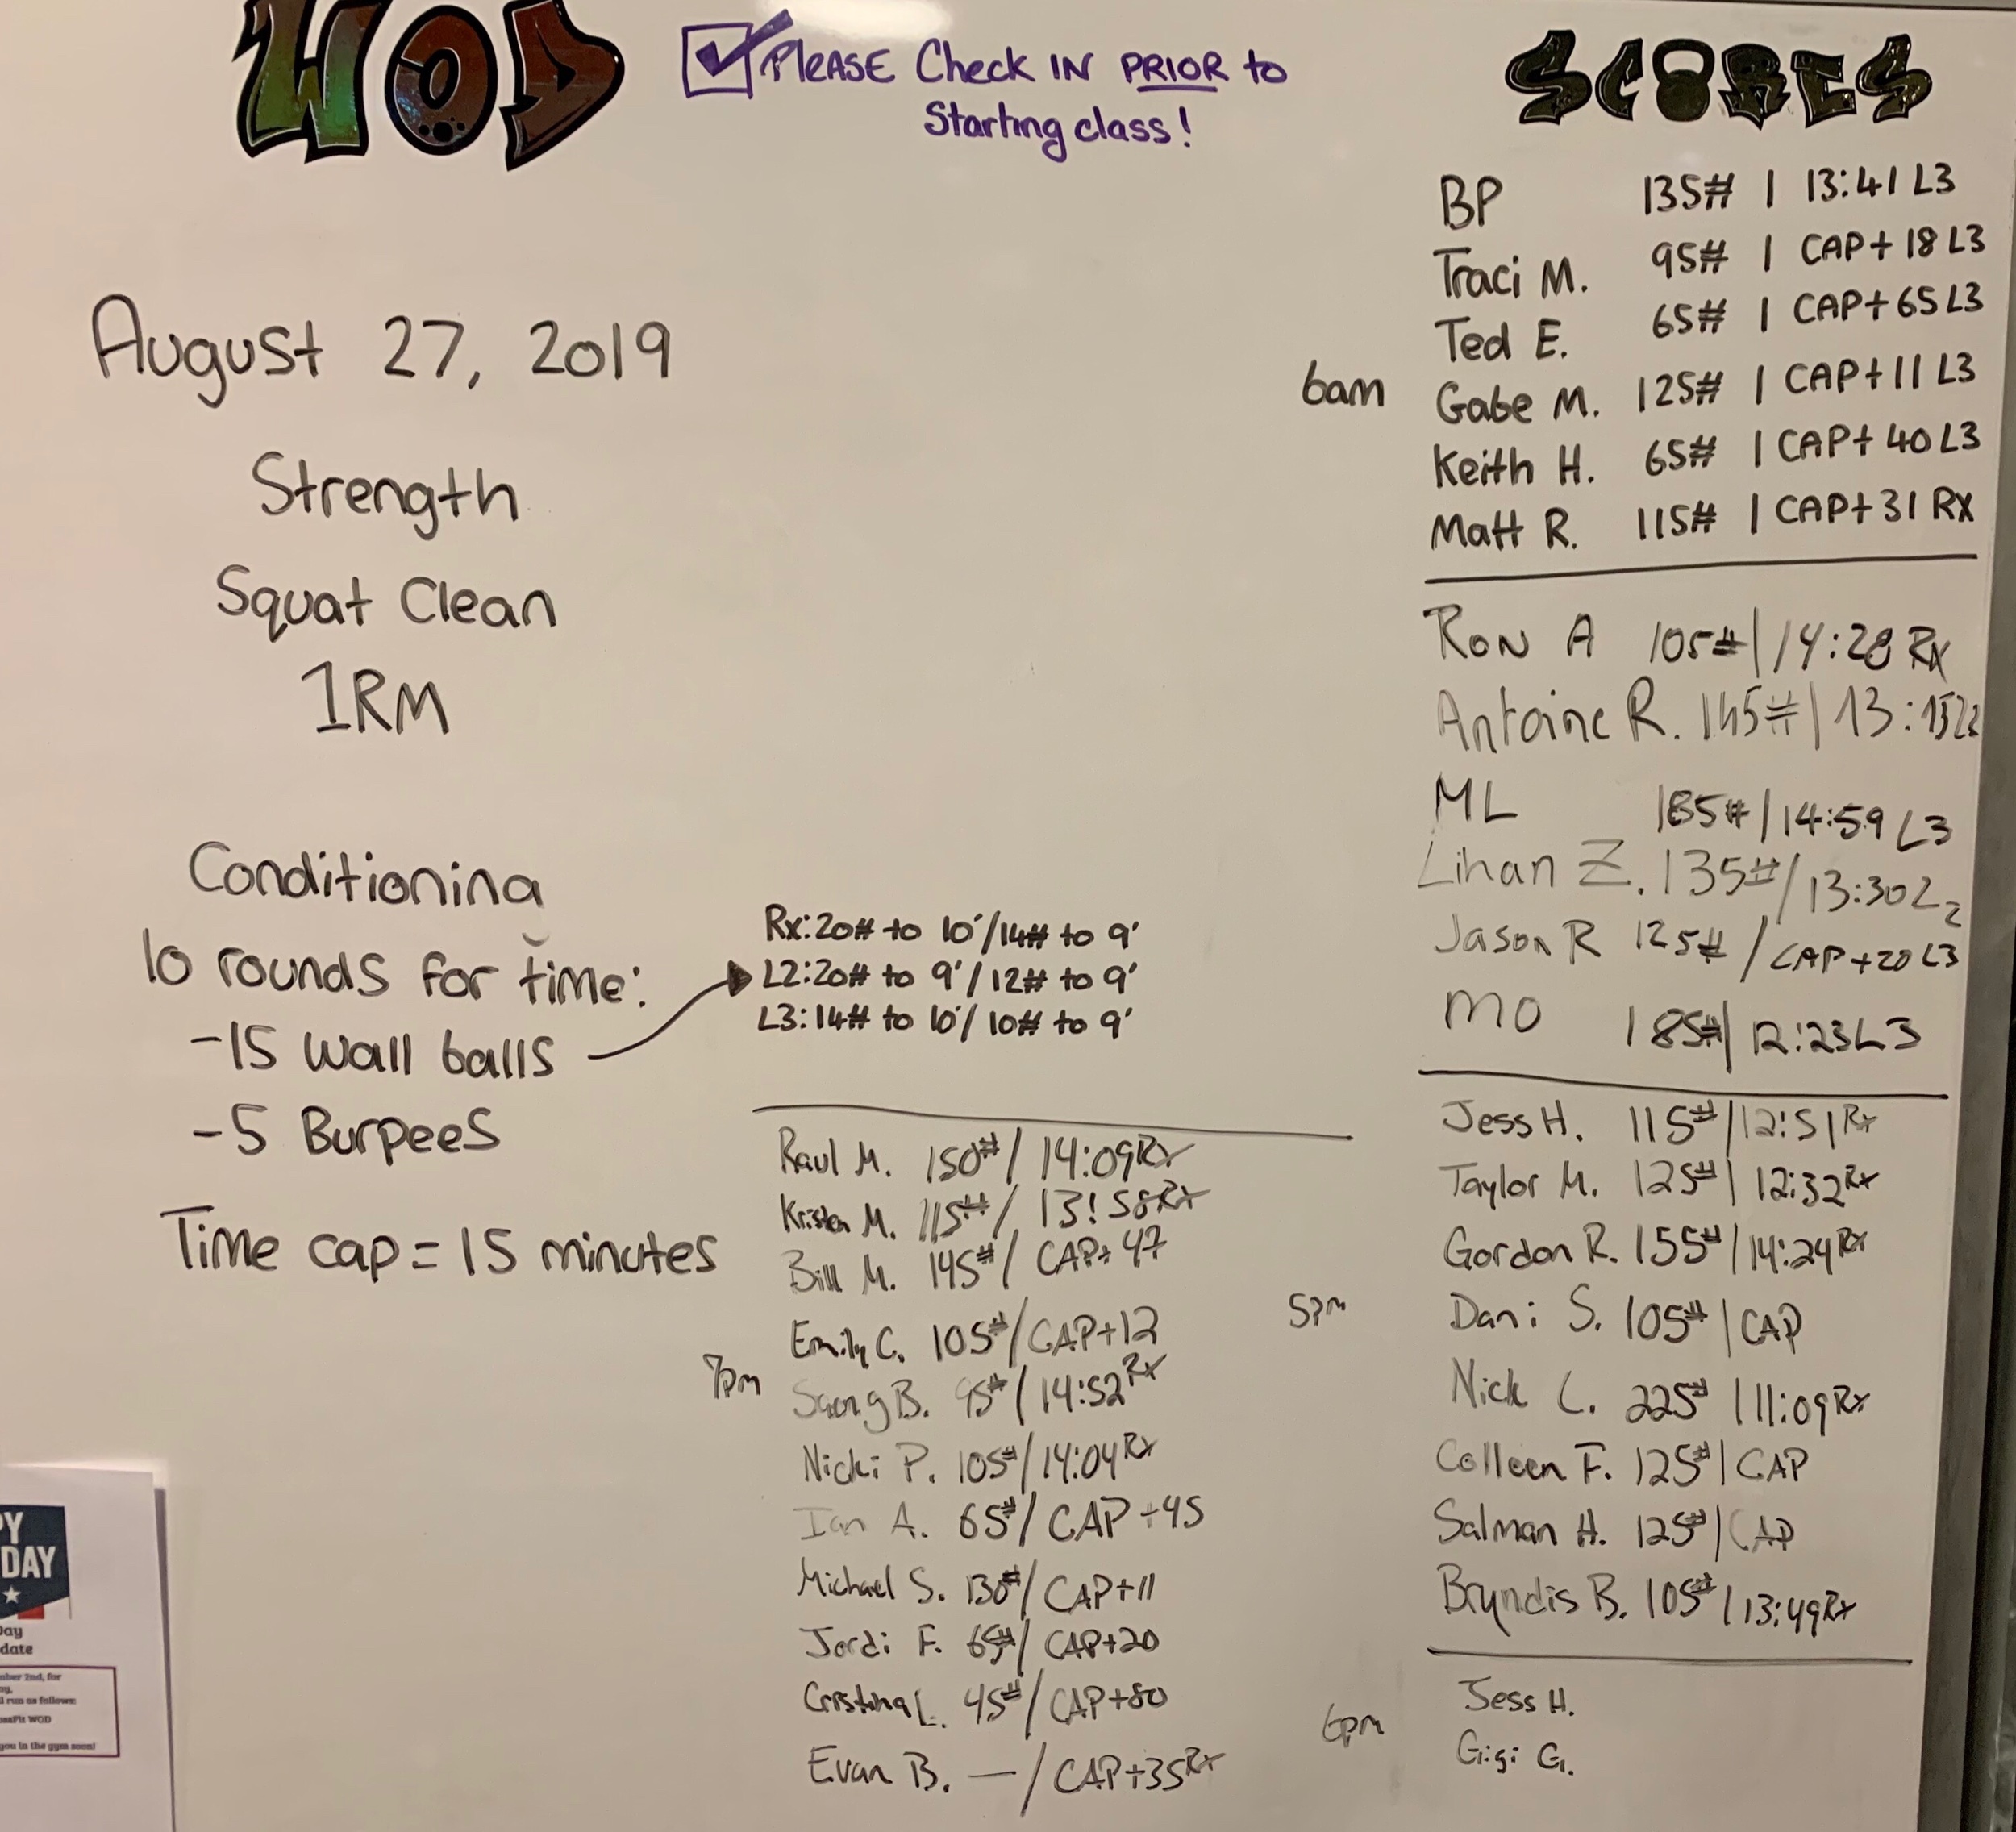 WOD
PLEASE Check IN PRIOR to
Starting class!
SCORES
August 27, 2019
Strength
Squat Clean
1RM
Conditioning
10 rounds for time:
-15 Wall balls
-5 Burpees
Time cap = 15 minutes
Rx: 20# to 10'/14# to 9'
L2: 20# to 9'/12# to 9'
L3: 14# to 10'/10# to 9'
6am
BP 135# | 13:41 L3
Traci M. 95# | CAP+18 L3
Ted E. 65# | CAP+65 L3
Gabe M. 125# | CAP+11 L3
Keith H. 65# | CAP+40 L3
Matt R. 115# | CAP+31 RX
Ron A 105# | 14:28 Rx
Antoine R. 145# | 13:15
ML 185# / 14:59 L3
Lihan Z. 135# / 13:30 L2
Jason R 125# / CAP+20 L3
MO 185# | 12:23 L3
5pm
Jess H. 115# | 12:51 Rx
Taylor M. 125# | 12:32 Rx
Gordon R. 155# | 14:24 Rx
Dani S. 105# | CAP
Nick C. 225# | 11:09 Rx
Colleen F. 125# | CAP
Salman H. 125# | CAP
Bryndis B. 105# | 13:49 Rx
6pm
Jess H.
Gigi G.
7pm
Raul M. 150# / 14:09 Rx
Kristen M. 115# / 13:58 Rx
Bill M. 145# / CAP+47
Emily C. 105# / CAP+12
B. 95# / 14:52 Rx
Nicki P. 105# / 14:04 Rx
Ian A. 65# / CAP+45
Michael S. 130# / CAP+11
Jordi F. 65# / CAP+20
Cristina L. 45# / CAP+80
Evan B. — / CAP+35 Rx
PY
DAY
Day
date
mber 2nd, for
l run as follows:
ossFit WOD
you in the gym soon!